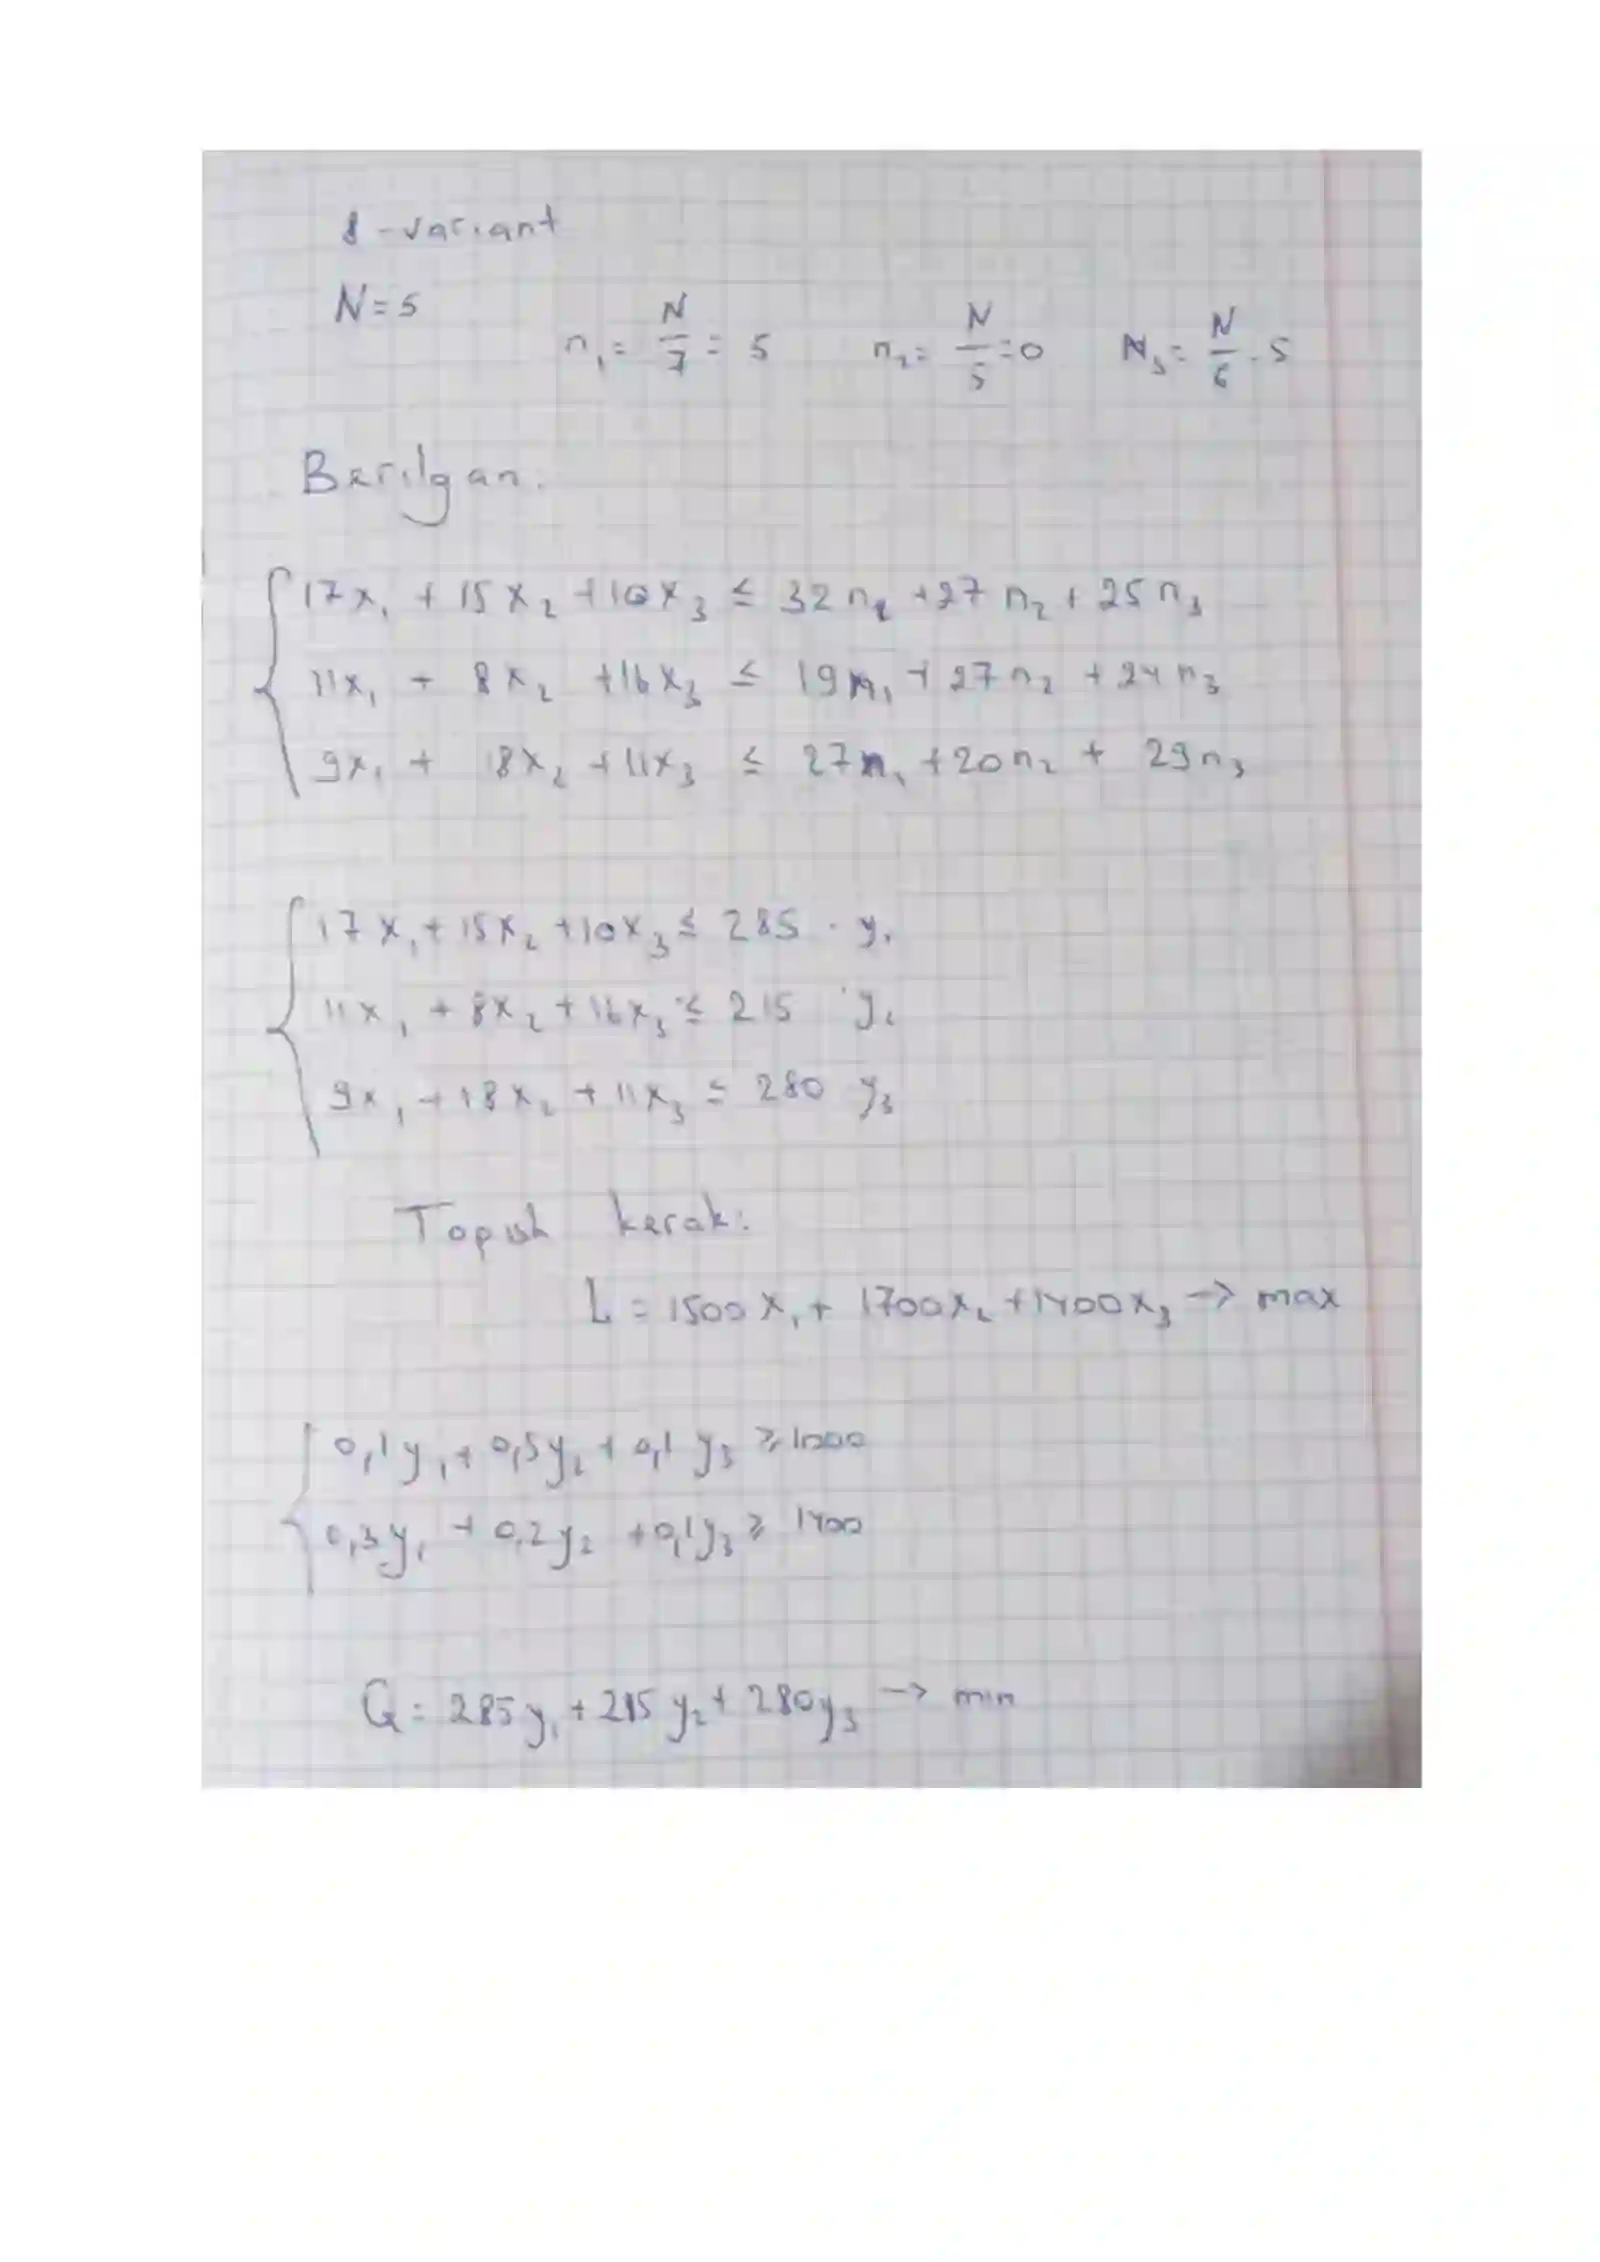 8-variant
N=5
n₁ = N/7 = 5 n₂ = N/5 = 0 N₃ = N/6 - 5
Berilgan:
17x₁ + 15x₂ + 10x₃ ≤ 32n₁ + 27n₂ + 25n₃
11x₁ + 8x₂ + 16x₃ ≤ 19n₁ + 27n₂ + 24n₃
9x₁ + 18x₂ + 11x₃ ≤ 27n₁ + 20n₂ + 29n₃
17x₁ + 15x₂ + 10x₃ ≤ 285 · y₁
11x₁ + 8x₂ + 16x₃ ≤ 215 · y₂
9x₁ + 18x₂ + 11x₃ ≤ 280 y₃
Topish kerak:
L = 1500x₁ + 1700x₂ + 1400x₃ → max
0,1y₁ + 0,5y₂ + 0,1y₃ ≥ 1000
0,3y₁ + 0,2y₂ + 0,1y₃ ≥ 1400
G = 285y₁ + 215y₂ + 280y₃ → min